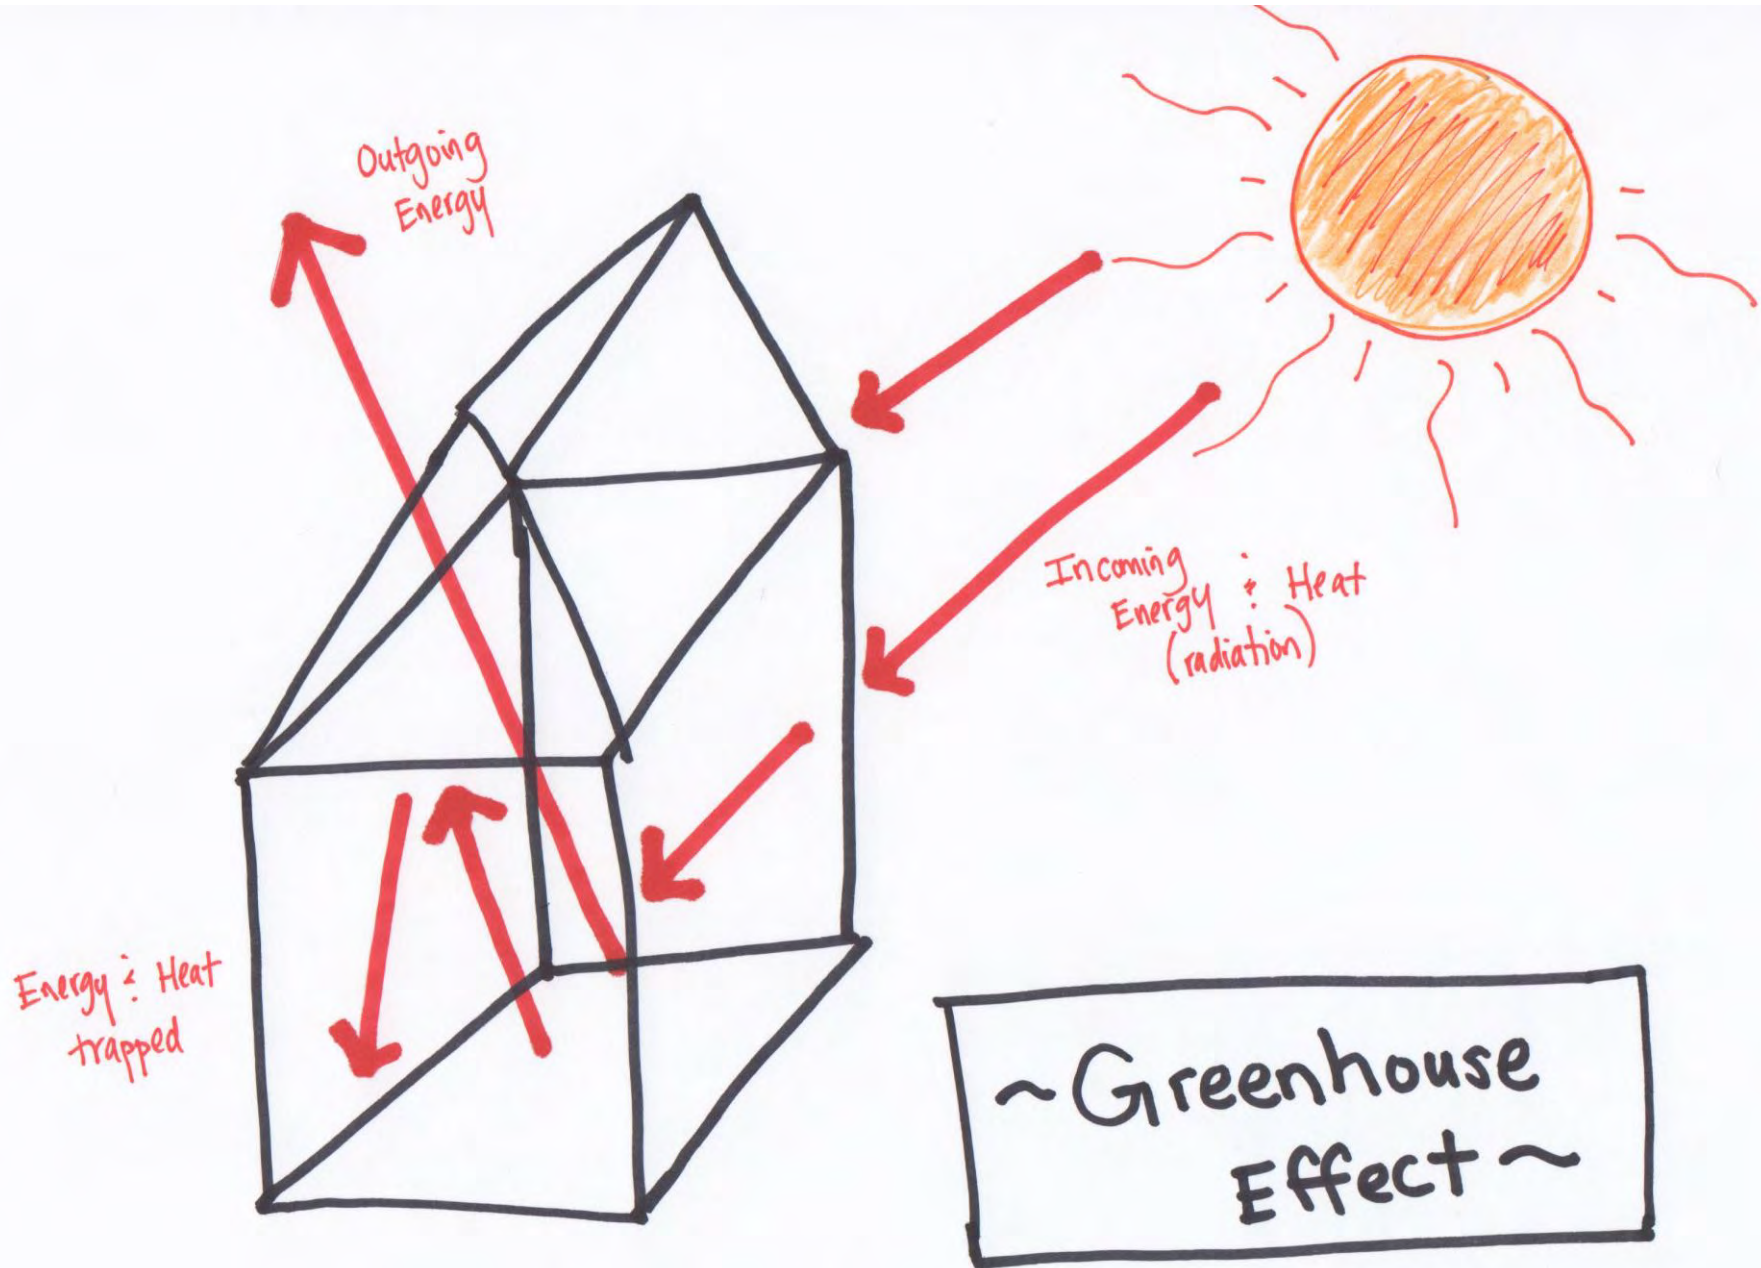 Outgoing
Energy
Incoming
Energy & Heat
(radiation)
Energy & Heat
trapped
~Greenhouse
Effect~